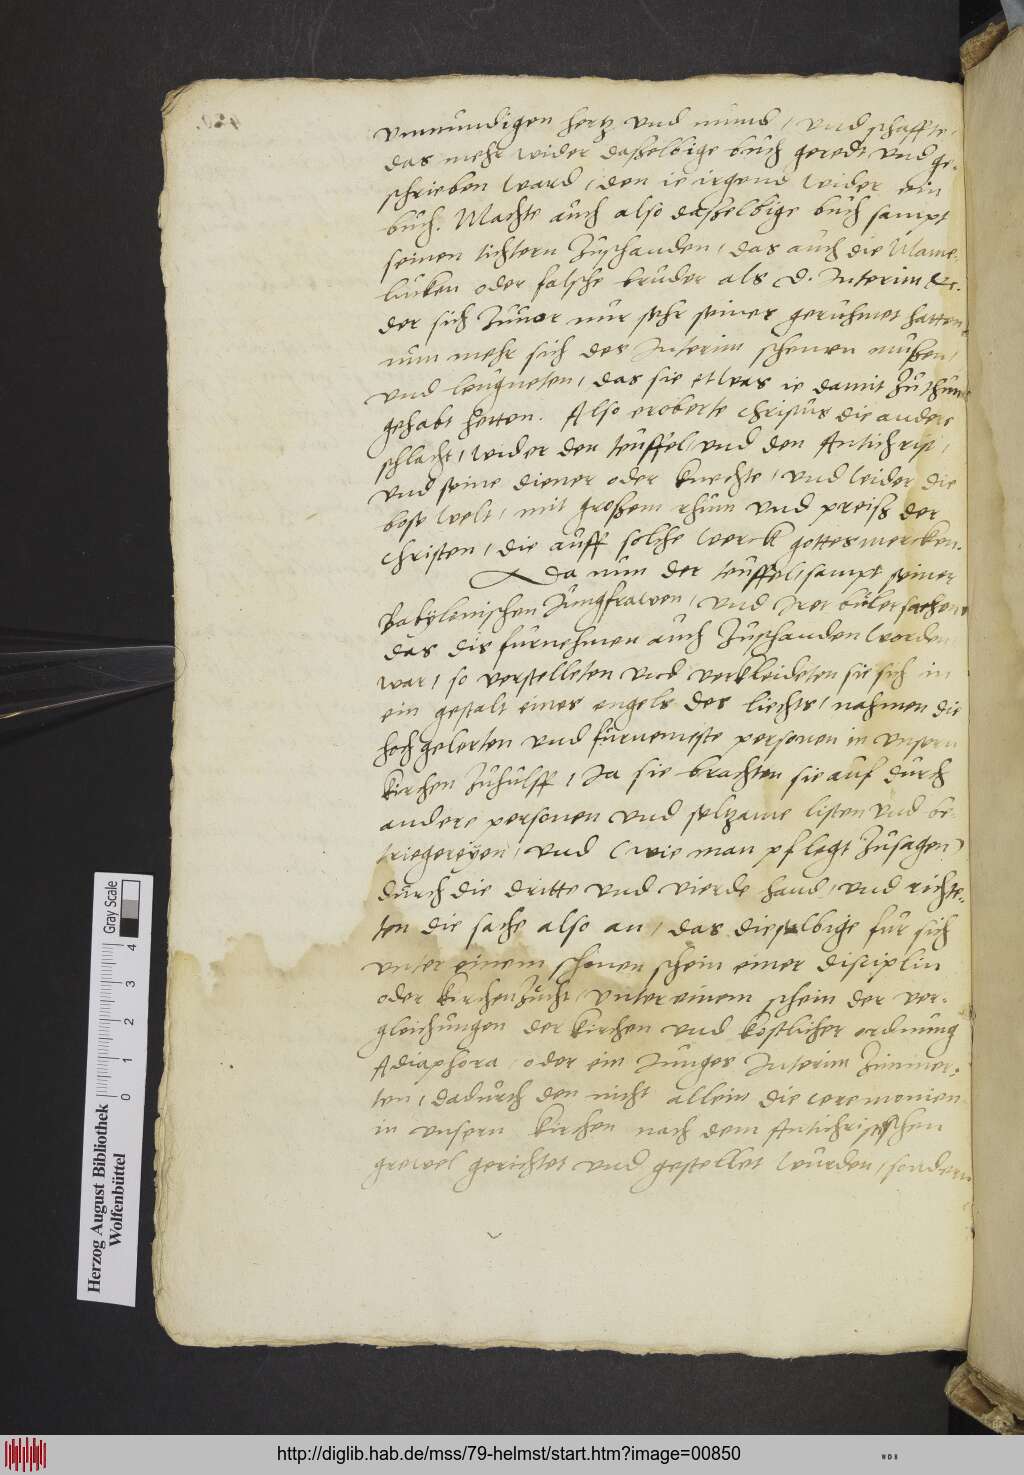 vnmundigen hertz vnd mund / vnd schaffte /
das mehr wider dasselbige buch geredt vnd ge-
schrieben ward / den ie irgend wider ein
buch. Machte auch also dasselbige buch sampt
seinen tichtern zuschanden / das auch die Mame-
lucken oder falsche bruder als D. Interim &c.
der sich zuuor nur sehr seiner geruhmet hatten
nun mehr sich des Interim schemen mussen /
vnd leugneten / das sie etwas ie damit zu thun
gehabt hetten. Also eroberte Christus die andere
schlacht / wider den teuffel / vnd den Antichrist /
vnd seine diener oder knechte / vnd leider die
bose welt / mit grossem rhum vnd preiss der
Christen / die auff solche werck gottes mercken.
Da nun der teuffel / sampt seiner
Babylonischen Jungfrawen / vnd irer bulersachen
das dis furnehmen auch zuschanden worden
war / so verstelleten vnd verkleideten sie sich in
ein gestalt eines engels des liechts / nahmen die
hochgelerten vnd furnemeste personen in vnsern
kirchen zuhulff / Ja sie brachten sie auf durch
andere personen vnd seltzame listen vnd be-
triegereyen / vnd (wie man pflegt zusagen)
durch die dritte vnd vierde hand / vnd richte-
ten die sache also an / das dieselbige fur sich
vnter einem schonen schein einer disciplin
oder kirchenzucht / vnter einem schein der ver-
gleichungen der kirchen vnd kostlicher ordnung
Adiaphora / oder ein Junges Interim zimmer-
ten / dadurch den nicht allein die ceremonien
in vnsern kirchen nach dem Antichristischen
grewel gerichtet vnd gestellet wurden / sondern
Herzog August Bibliothek
Wolfenbüttel
0 1 2 3 4
Gray Scale
http://diglib.hab.de/mss/79-helmst/start.htm?image=00850
WDB